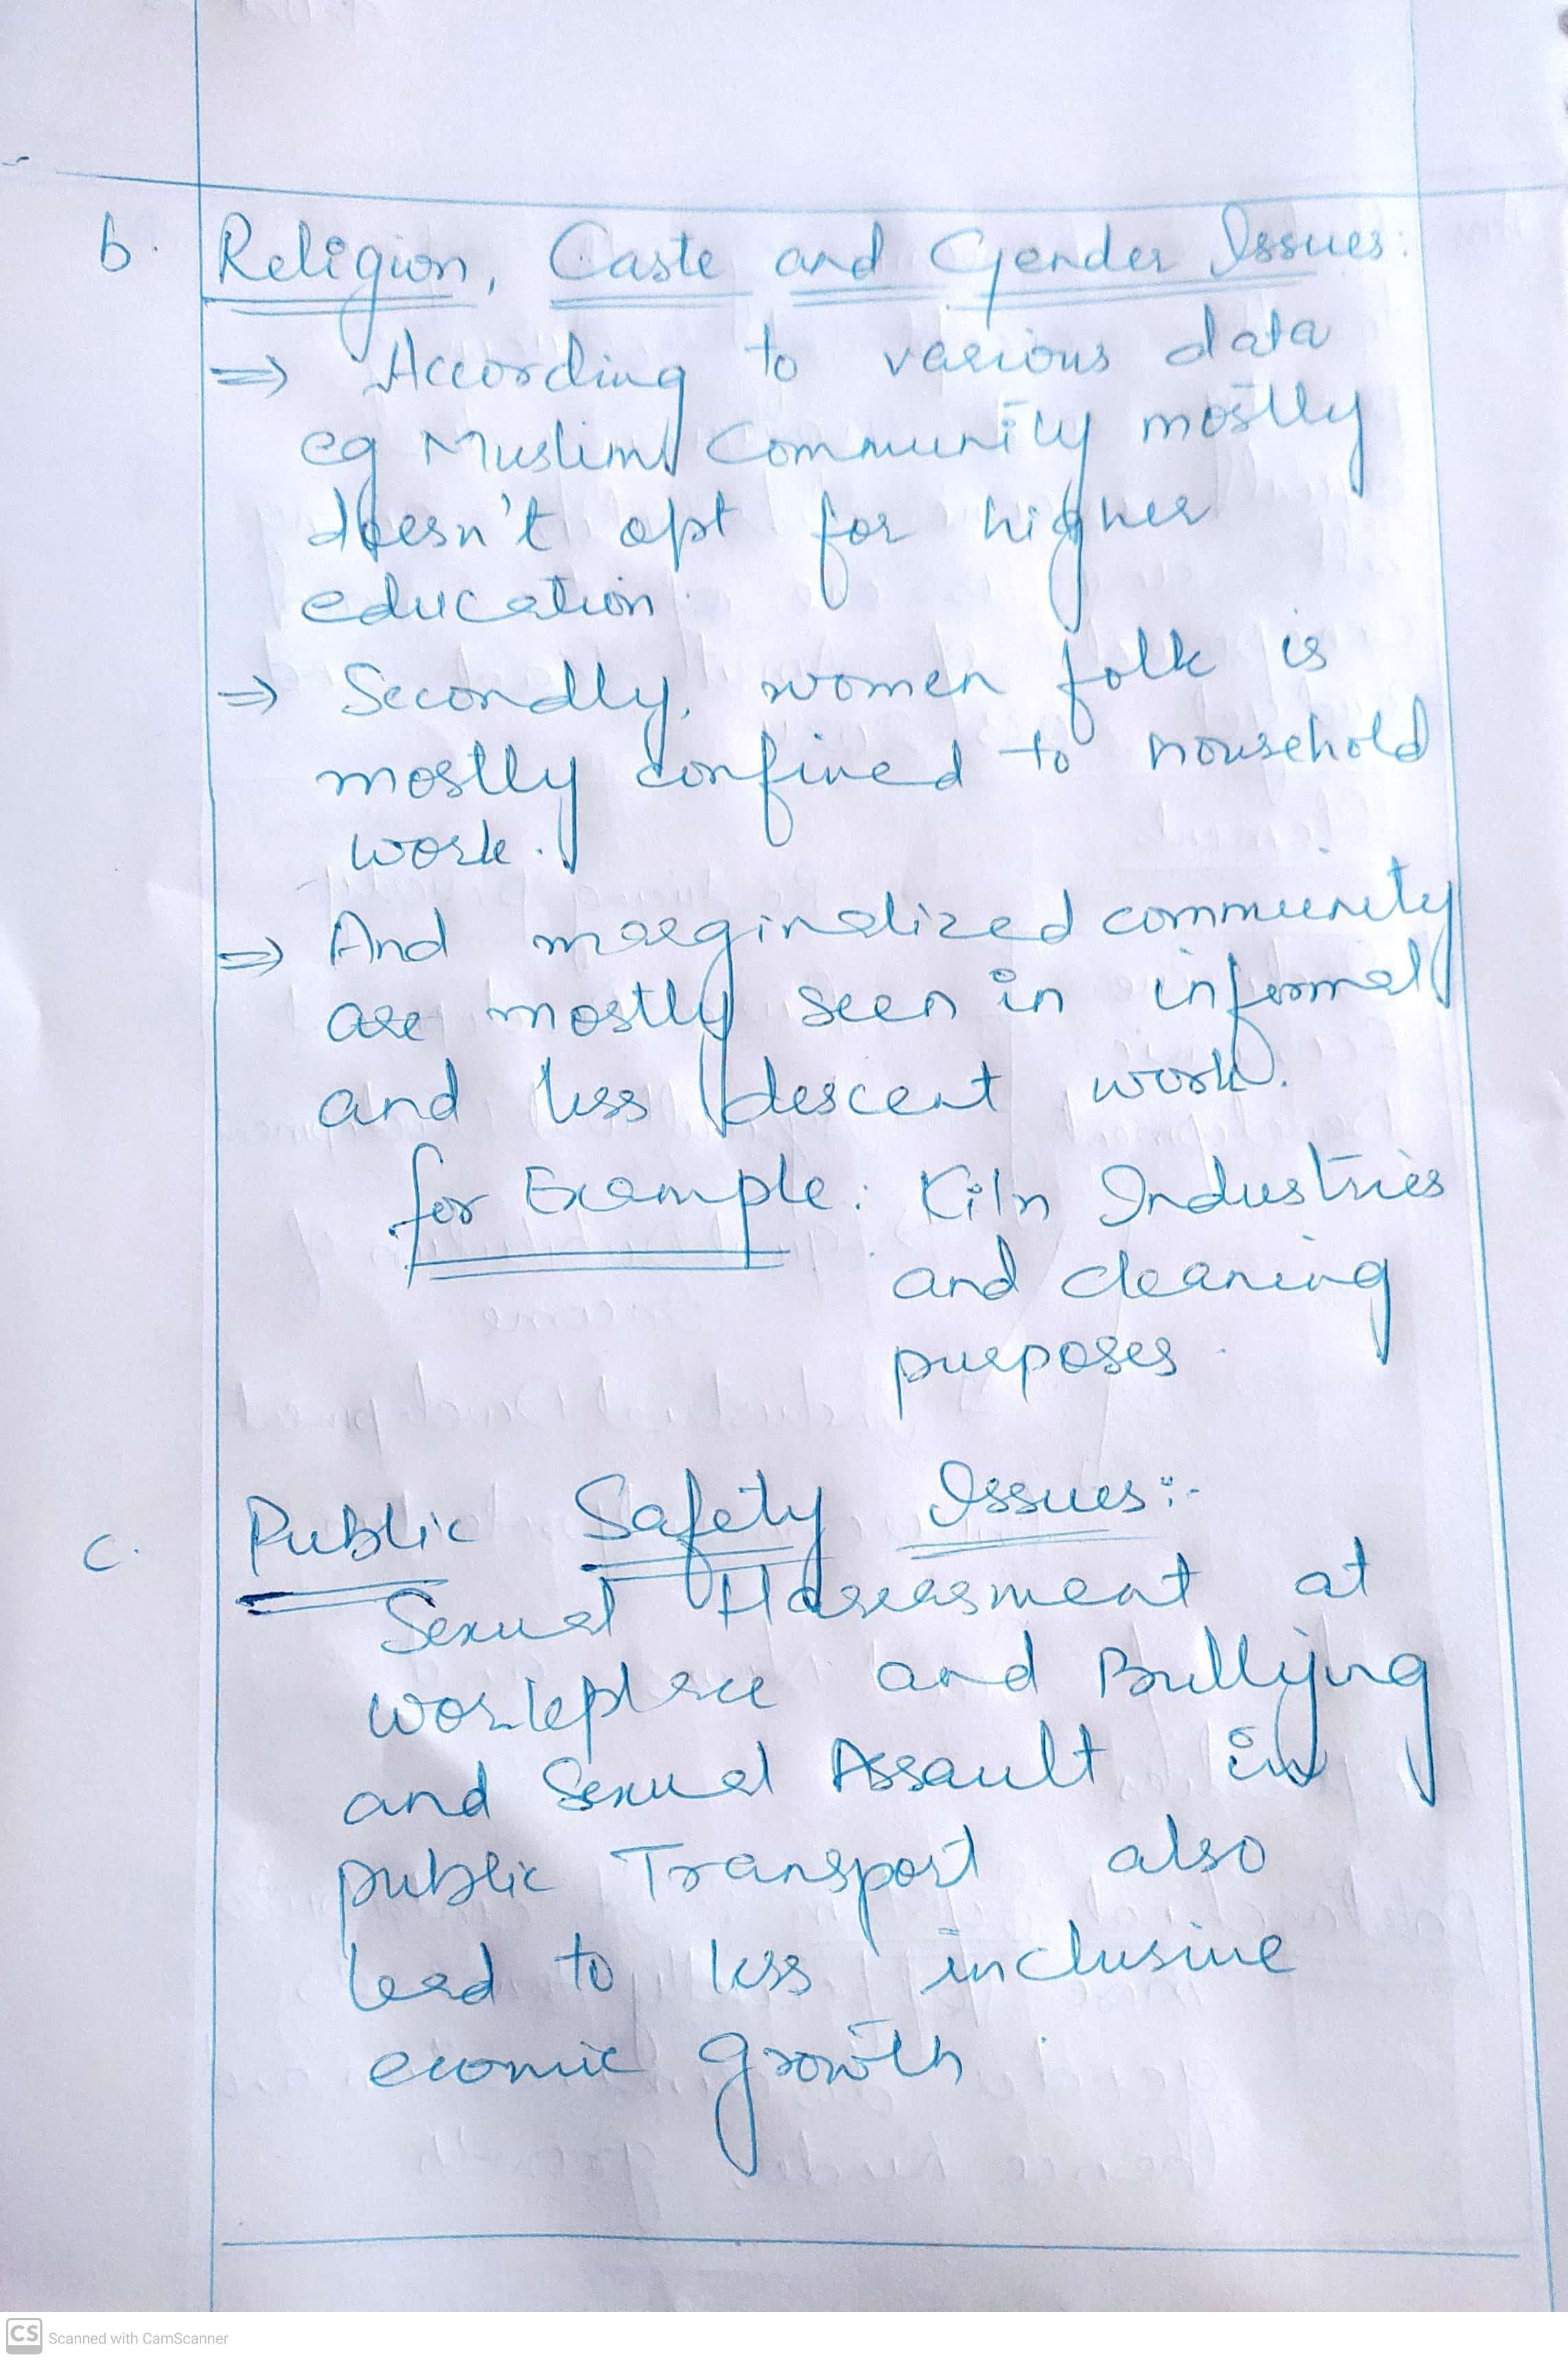 b. Religion, Caste and Gender Issues:
⇒ According to various data
eg Muslim Community mostly
doesn't opt for higher
education.
⇒ Secondly, women folk is
mostly confined to household
work.
⇒ And marginalized community
are mostly seen in informal
and less descent work.
for Example: Kiln Industries
and cleaning
purposes.
c. Public Safety Issues:-
Sexual Harassment at
workplace and Bullying
and Sexual Assault in
public Transport also
lead to less inclusive
ecomic growth.
CS Scanned with CamScanner